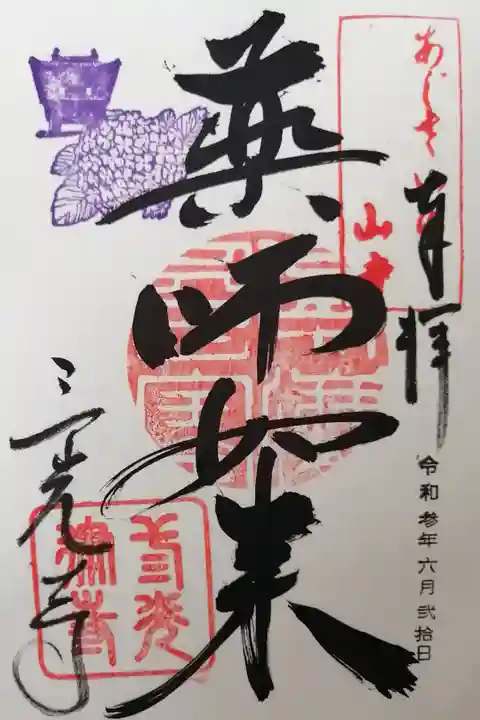 あじさい
山寺
奉拝
令和参年六月弐拾日
薬師如来
三光寺